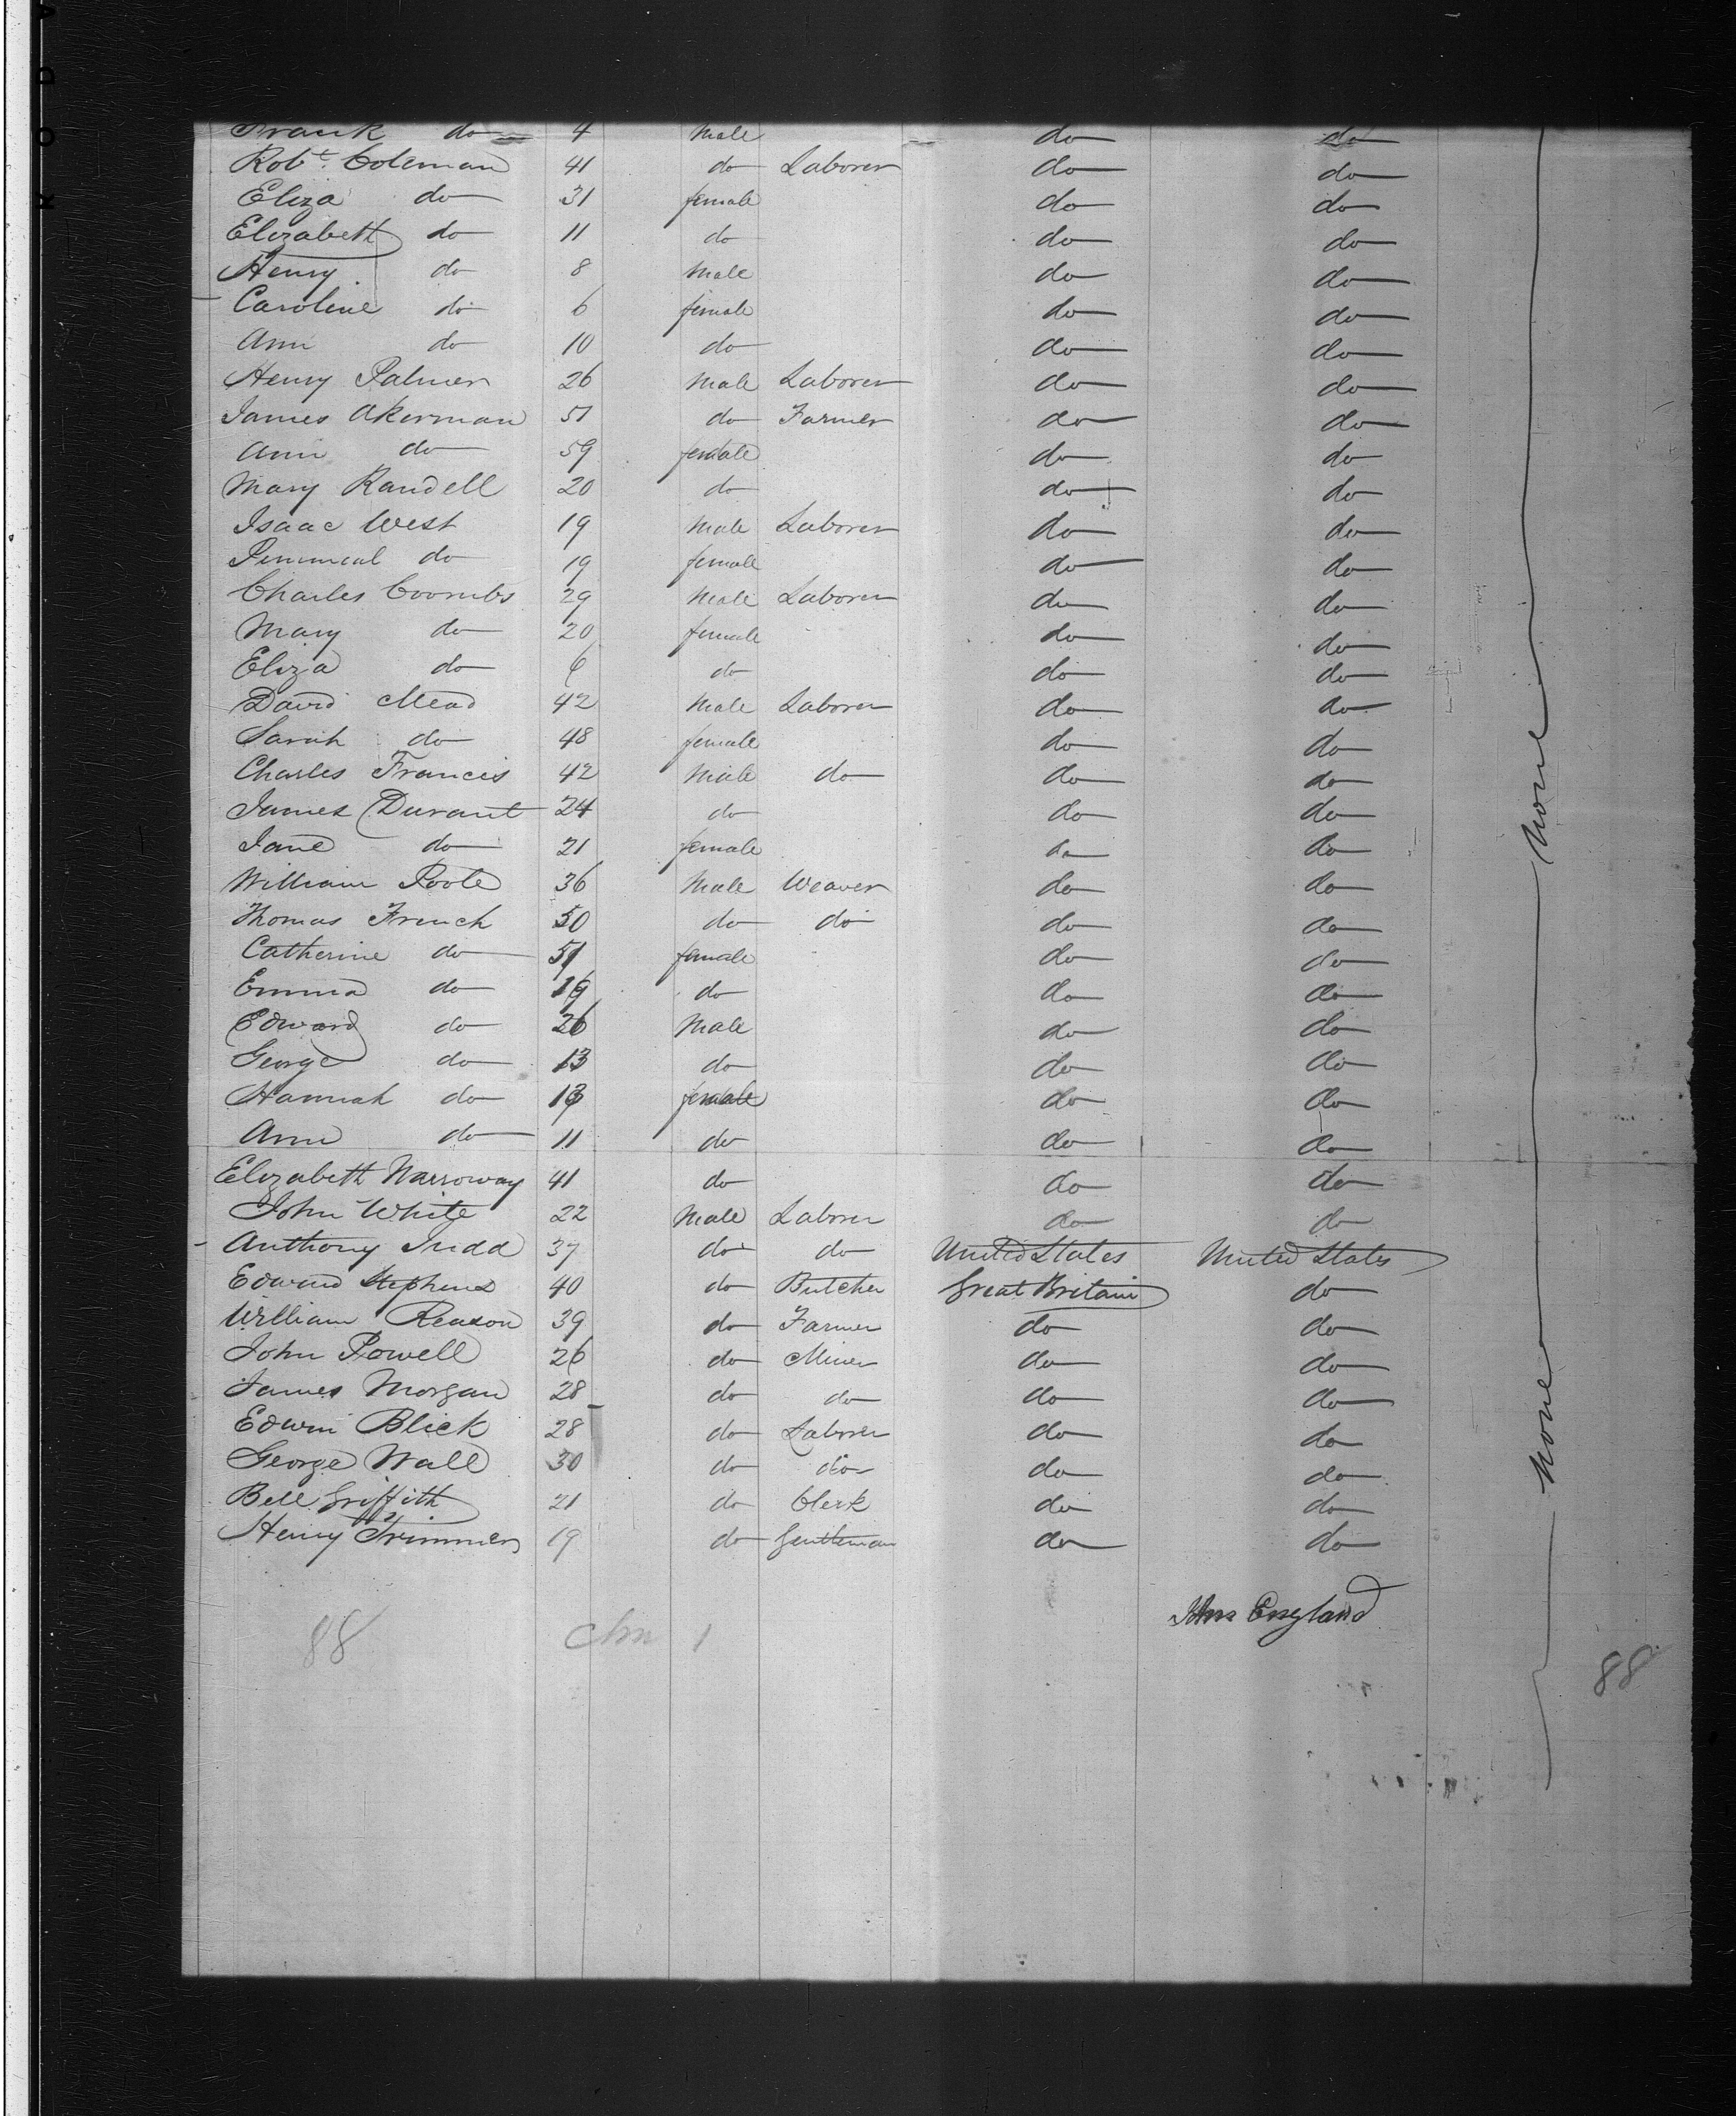 Frank do 4 Male do do
Robt. Coleman 41 do Laborer do do
Eliza do 31 female do do
Elizabeth do 11 do do do
Henry do 8 Male do do
Caroline do 6 female do do
Ann do 10 do do do
Henry Palmer 26 Male Laborer do do
James Akerman 51 do Farmer do do
Ann do 59 female do do
Mary Randell 20 do do do
Isaac West 19 Male Laborer do do
do 19 female do do
Charles Coombs 29 Male Laborer do do
Mary do 20 female do do
Eliza do 6 do do do
David Mead 42 Male Laborer do do
Sarah do 48 female do do
Charles Francis 42 Male do do do
James Durant 24 do do do
Jane do 21 female do do
William Poole 36 Male Weaver do do
Thomas French 50 do do do do
Catherine do 51 female do do
Emma do 19 do do do
Edward do 26 Male do do
George do 13 do do do
Hannah do 13 female do do
Ann do 11 do do do
Elizabeth Narroway 41 do do do
John White 22 Male Laborer do do
Anthony Judd 37 do do United States United States
Edward Stephens 40 do Butcher Great Britain do
William Reason 39 do Farmer do do
John Powell 26 do Miner do do
James Morgan 28 do do do do
Edwin Blick 28 do Laborer do do
George Wall 30 do do do do
Bell Griffith 21 do Clerk do do
Henry Trimmer 19 do Gentleman do do
none
none
Jno England
88 1
88